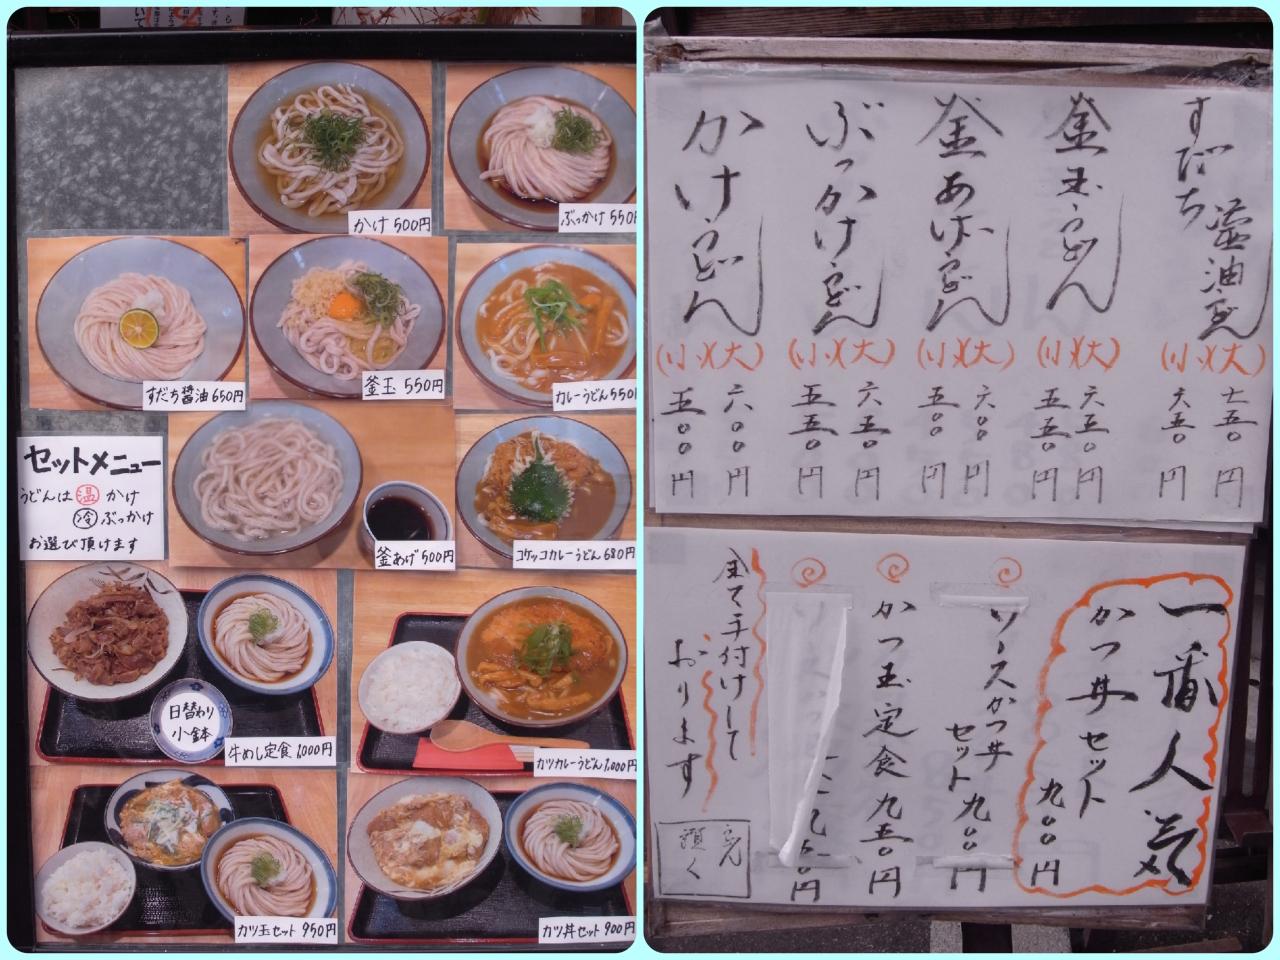 かけ 500円
ぶっかけ 550円
すだち醤油 650円
釜玉 550円
カレーうどん 550
セットメニュー
うどんは 温 かけ
冷 ぶっかけ
お選び頂けます
釜あげ 500円
コケッコカレーうどん 680円
日替わり
小鉢
牛めし定食 1,000円
カツカレーうどん 1,000円
カツ玉セット 950円
カツ丼セット 900円
かけうどん
(小)(大)
五〇〇円
六〇〇円
ぶっかけうどん
(小)(大)
五五〇円
六五〇円
釜あげうどん
(小)(大)
五〇〇円
六〇〇円
釜玉うどん
(小)(大)
五五〇円
六五〇円
すだち醤油うどん
(小)(大)
六五〇円
七五〇円
一番人気
かつ丼セット 九〇〇円
ソースかつ丼
セット 九〇〇円
かつ玉定食 九五〇円
円
全て手付けして
おります